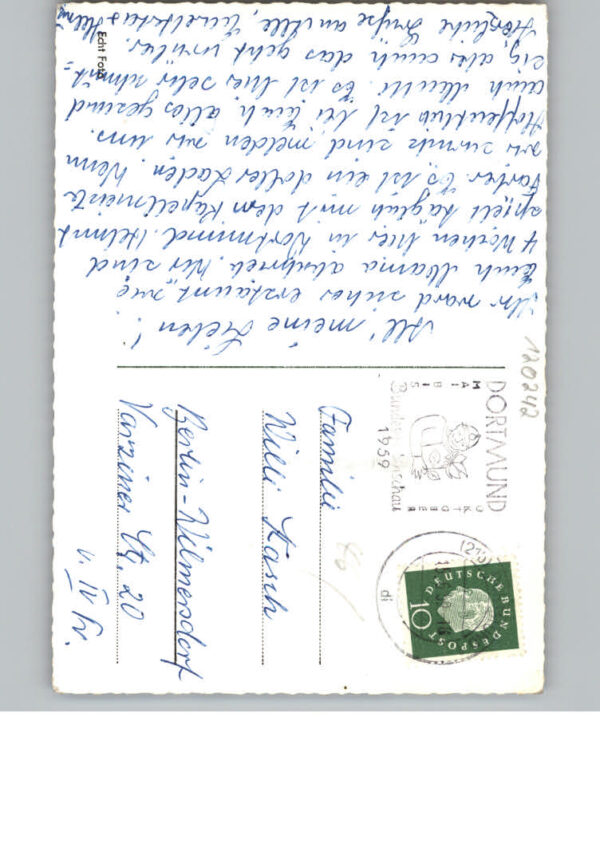 All' meine Lieben!
Ihr werd sicher erstaunt, wie
Euch Mama abschrieb. Wir sind
4 Wochen hier in Dortmund. Helmut
spielt täglich mit dem Kapellmeister
Farber. Es ist ein doller Laden. Wenn
wir zurück sind melden wir uns.
Hoffentlich ist bei Euch alles gesund
auch Mutti. Es ist hier sehr schmut-
zig, aber auch das geht vorüber.
Herzliche Grüße an alle,
Echt Foto
120242
DORTMUND
MAI BIS
OKTOBER
1959
DEUTSCHE BUNDESPOST
10
Familie
Willi Kasch
Berlin-Wilmersdorf
Varziner Str. 20
v. IV Tr.